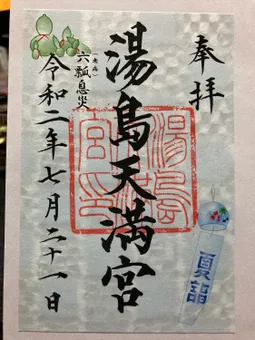 奉拝
湯島天満宮
湯島
天満
宮印
六瓢息災
令和二年七月二十一日
夏詣